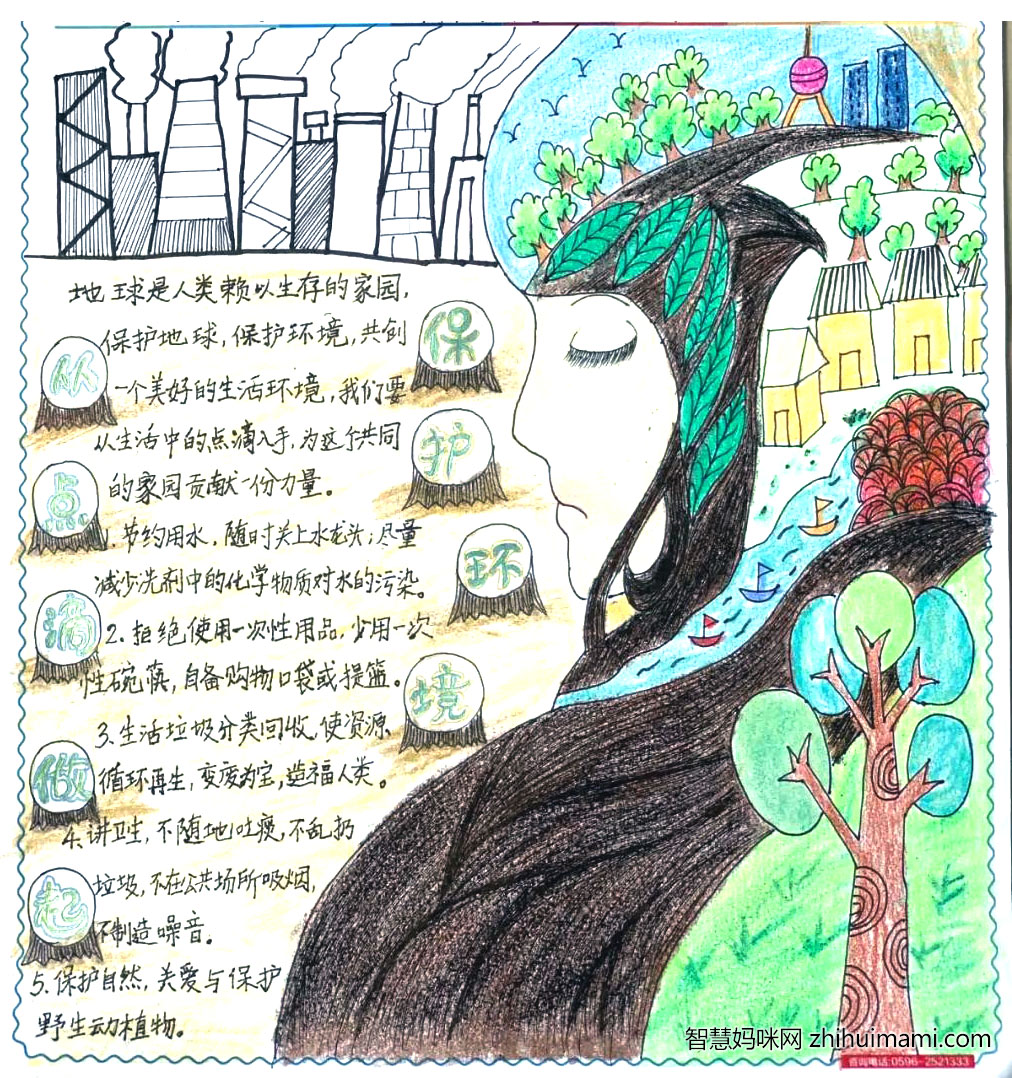 地球是人类赖以生存的家园，
保护地球，保护环境，共创
一个美好的生活环境，我们要
从生活中的点滴入手，为这个共同
的家园贡献一份力量。
1.节约用水，随时关上水龙头；尽量
减少洗剂中的化学物质对水的污染。
2.拒绝使用一次性用品，少用一次
性碗筷，自备购物口袋或提篮。
3.生活垃圾分类回收，使资源
循环再生，变废为宝，造福人类。
4.讲卫生，不随地吐痰，不乱扔
垃圾，不在公共场所吸烟，
不制造噪音。
5.保护自然，关爱与保护
野生动植物。
从
点
滴
做
起
保
护
环
境
智慧妈咪网 zhihuimami.com
咨询电话:0596-2521333